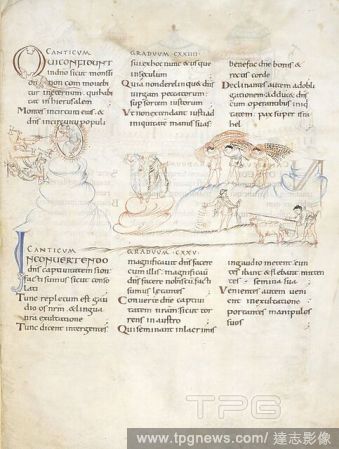 CANTICUM
QUICONFIDUNT
indño sicut mons si
on non commoue
tur inaeternum. quihabi
tat inhierusalem
Montes incircuitu eius. &
dñs incircuitu populi
GRADUUM CXXIIII
sui exhoc nunc & usque
inseculum
Quia nonderelinqu& dñs
uirgam peccatorum
supsortem iustorum
Ut nonextendant iusti ad
iniquitatē manus suas
benefac dñe bonis &
rectis corde
Declinantes autem adobli
gationem adduc& dñs
cum operantibus iniq
tatem pax super isra
hel
CANTICUM
INCONUERTENDO
dñs captiuitatem sion
facti sumus sicut conso
lati
Tunc repletum est gau
dio os nr̄m. & lingua
nr̄a exultatione
Tunc dicent intergentes
GRADUUM CXXV
magnificauit dñs facere
cum illis. magnificauit
dñs facere nobiscū facti
sumus l&antes
Conuerte dñe captiui
tatem nr̄am sicut tor
rens inaustro
Qui seminant inlacrimis
ingaudio metent Eun
tes ibant & flebant mitten
tes semina sua
Uenientes autem ueni
ent inexultatione
portantes manipulos
suos
TPG
www.tpgnews.com/ 達志影像